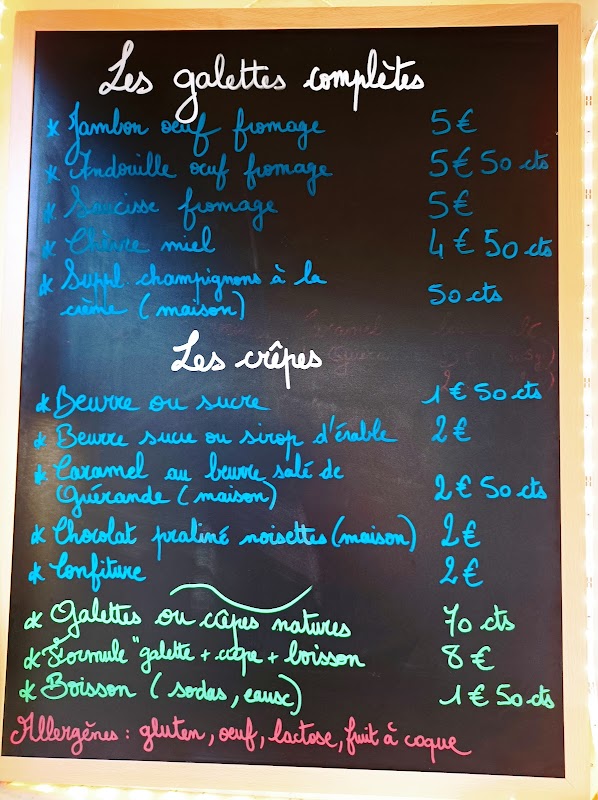 Les galettes complètes
* Jambon oeuf fromage 5 €
* Andouille oeuf fromage 5 € 50 cts
* Saucisse fromage 5 €
* Chèvre miel 4 € 50 cts
* Suppl. champignons à la
crème (maison) 50 cts
Les crêpes
* Beurre ou sucre 1 € 50 cts
* Beurre sucre ou sirop d'érable 2 €
* Caramel au beurre salé de
Guérande (maison) 2 € 50 cts
* Chocolat praliné noisettes (maison) 2 €
* Confiture 2 €
* Galettes ou crêpes natures 70 cts
* Formule "galette + crêpe + boisson 8 €
* Boisson (sodas, eaux) 1 € 50 cts
Allergènes : gluten, oeuf, lactose, fruit à coque